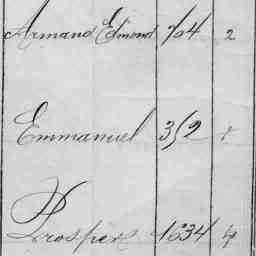 Armand Edmond 704 2
Emmanuel 352
Prosper 1634 4